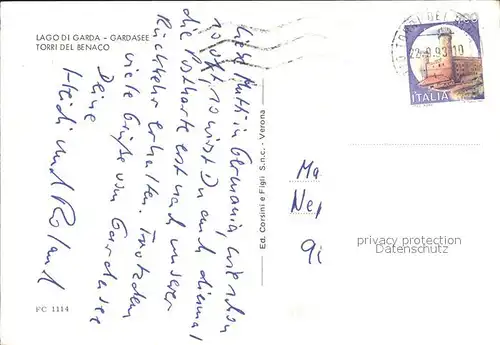 LAGO DI GARDA - GARDASEE
TORRI DEL BENACO
Liebe Mutti in Germania, wie schon
so oft, so wirst Du auch diesmal
die Postkarte erst nach unserer
Rückkehr erhalten. Trotzdem
viele Grüße vom Gardasee
Deine
Heidi und Roland
FC 1114
Ed. Corsini e Figli S.n.c. - Verona
TORRI DEL
28.9.93 19
ITALIA
Ma
Ne
9
privacy protection
Datenschutz